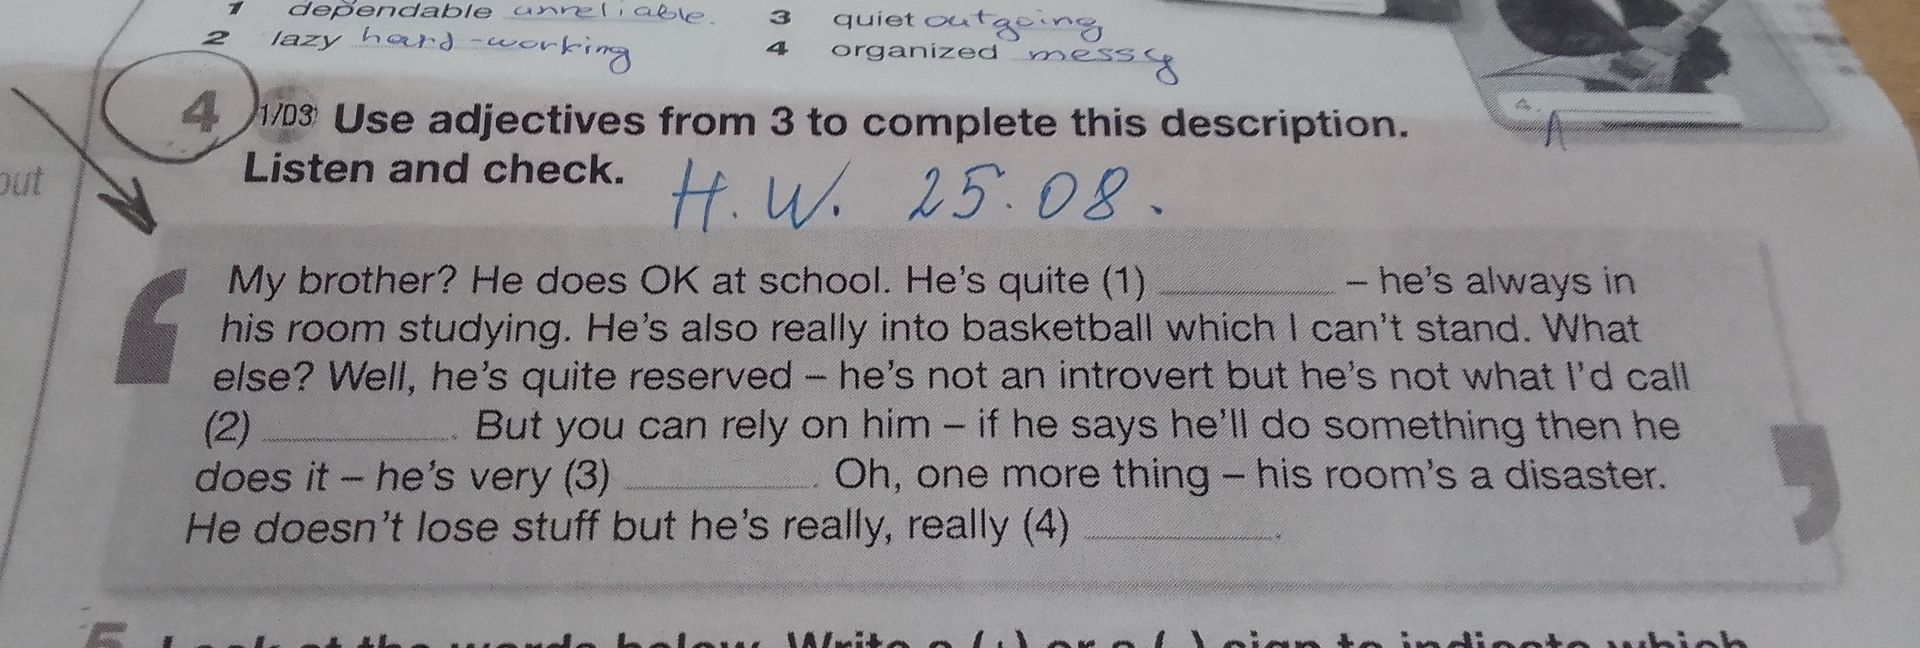 1 dependable unreliable. 3 quiet outgoing
2 lazy hard-working 4 organized messy
4 1/03 Use adjectives from 3 to complete this description.
Listen and check.
H.W. 25.08.
out
My brother? He does OK at school. He's quite (1) __________ – he's always in
his room studying. He's also really into basketball which I can't stand. What
else? Well, he's quite reserved – he's not an introvert but he's not what I'd call
(2) __________. But you can rely on him – if he says he'll do something then he
does it – he's very (3) __________. Oh, one more thing – his room's a disaster.
He doesn't lose stuff but he's really, really (4) __________.
5 Look at the words below. Write a (+) or a (-) sign to indicate which